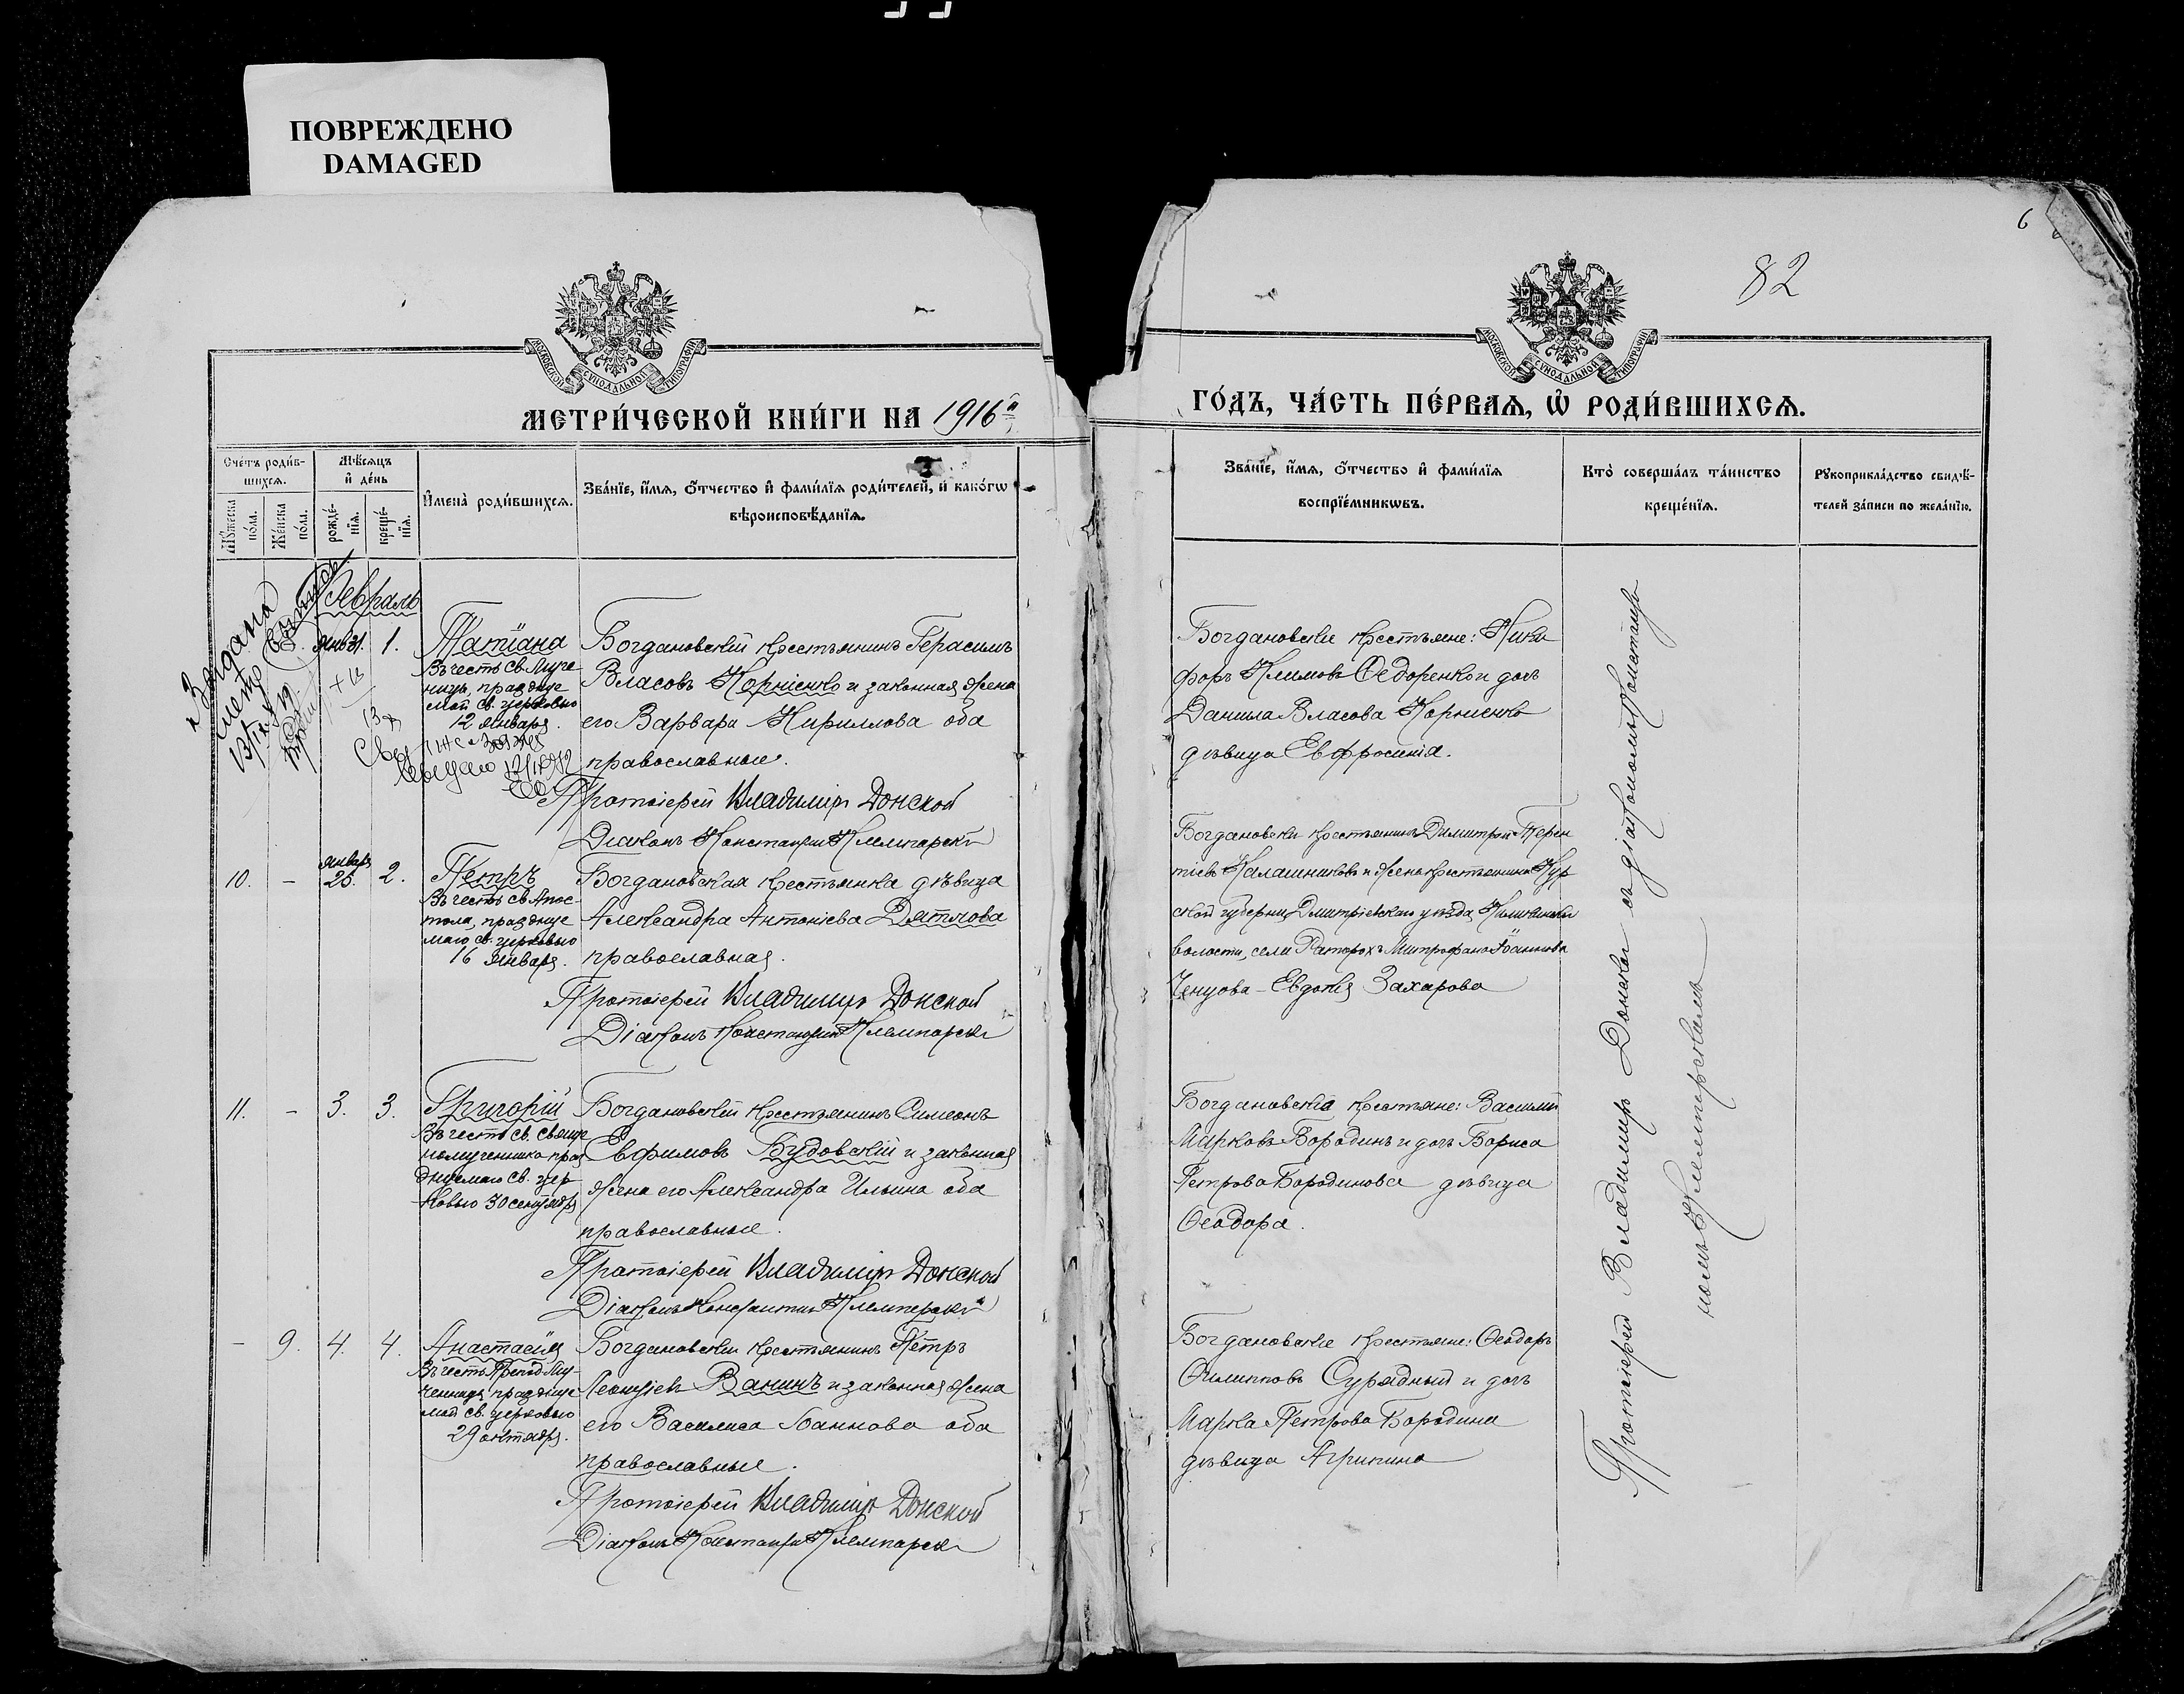 ПОВРЕЖДЕНО
DAMAGED
6
82
МОСКОВСКОЙ СѴНОДАЛЬНОЙ ТИПОГРАФІИ
МОСКОВСКОЙ СѴНОДАЛЬНОЙ ТИПОГРАФІИ
МЕТРИ́ЧЕСКОЙ КНИ́ГИ НА 1916й
ГО́ДЪ, ЧА́СТЬ ПЕ́РВАЯ, Ѡ҆ РОДИ́ВШИХСЯ.
Сче́тъ роди́в-
шихся.
Мꙋ́жеска
по́ла.
Же́нска
по́ла.
Мѣ́сяцъ
и҆ де́нь
рожде́-
нїя.
креще́-
нїя.
И҆мена̀ роди́вшихся.
Зва́нїе, и҆́мя, ѻ҆́тчество и҆ фами́лїя роди́телей, и҆ како́гѡ
вѣроисповѣ́данїя.
Зва́нїе, и҆́мя, ѻ҆́тчество и҆ фами́лїя
воспрїе́мникѡвъ.
Кто̀ соверша́лъ та́инство
креще́нїя.
Рꙋкоприкла́дство свидѣ́-
телей за́писи по жела́нїю.
Февраль
янв 31. 1.
Татіана
Въ честь св. Муче
ницы, праздnуе
мой св. церковью
12 января.
Богдановскій крестьянинъ Герасимъ
Власовъ Корніенко и законная жена
его Варвара Кириллова оба
православные.
Протоіерей Владиміръ Донской
Діаконъ Константинъ
Богдановскіе крестьяне: Ники
форъ Климовъ Ѳедоренко и дочь
Данила Власова Корніенко
дѣвица Евфросинія.
10. - январь 25. 2.
Петръ
Въ честь св. Апос-
тола, праздnуе
маго св. церковью
16 января.
Богдановская крестьянка дѣвица
Александра Антоніева Дятлова
православная.
Протоіерей Владиміръ Донской
Діаконъ Константинъ
Богдановскій крестьянинъ Димитрій Терен
тіевъ Калашниковъ и жена крестьянина Кур
ской губерніи Дмитріевскаго уѣзда
волости, села Митрофана Іоаннова
Евдокія Захарова
11. - 3. 3.
Григорій
Въ честь св. Свяще
номученика праз
днуемаго св. цер-
ковью 30 сентября
Богдановскій крестьянинъ Симеонъ
Евфимовъ Будовскій и законная
жена его Александра Ильина оба
православные.
Протоіерей Владиміръ Донской
Діаконъ Константинъ
Богдановскіе крестьяне: Василій
Марковъ Бородинъ и дочь Бориса
Петрова Бородинова дѣвица
Ѳеодора.
- 9. 4. 4.
Анастасія
Въ честь Препод. Му-
ченицы, праздnуе
мой св. церковью
29 октября.
Богдановскій крестьянинъ Петръ
Леонтіевъ Ванинъ и законная жена
его Василиса Іоаннова оба
православные.
Протоіерей Владиміръ Донской
Діаконъ Константинъ
Богдановскіе крестьяне: Ѳеодоръ
Филипповъ Сурядный и дочь
Марка Петрова Бородина
дѣвица Агрипина
Протоіерей Владиміръ Донской съ діакономъ Константи
номъ